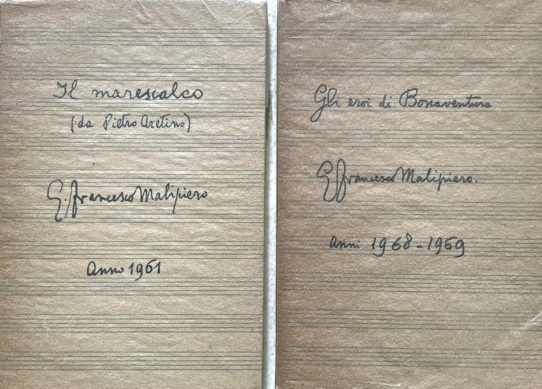 Il marescalco
(da Pietro Aretino)
G. Francesco Malipiero
Anno 1961
Gli eroi di Bonaventura
G Francesco Malipiero.
Anni 1968-1969